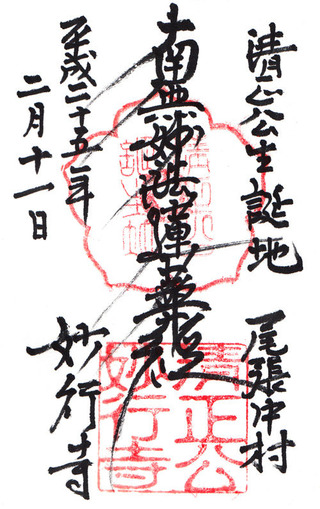 清正公生誕地
尾張中村
南無妙法蓮華経
平成二十五年
二月十一日
妙行寺
清正公
妙行寺